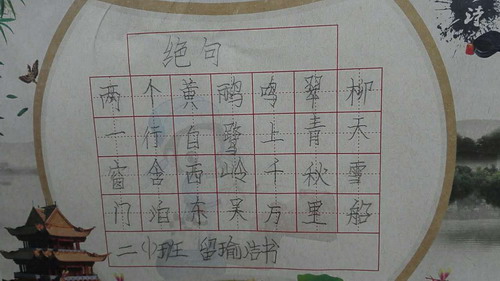 绝句
两个黄鹂鸣翠柳
一行自鹭上青天
窗含西岭千秋雪
门泊东吴万里船
二(1)班 留瑜浩书